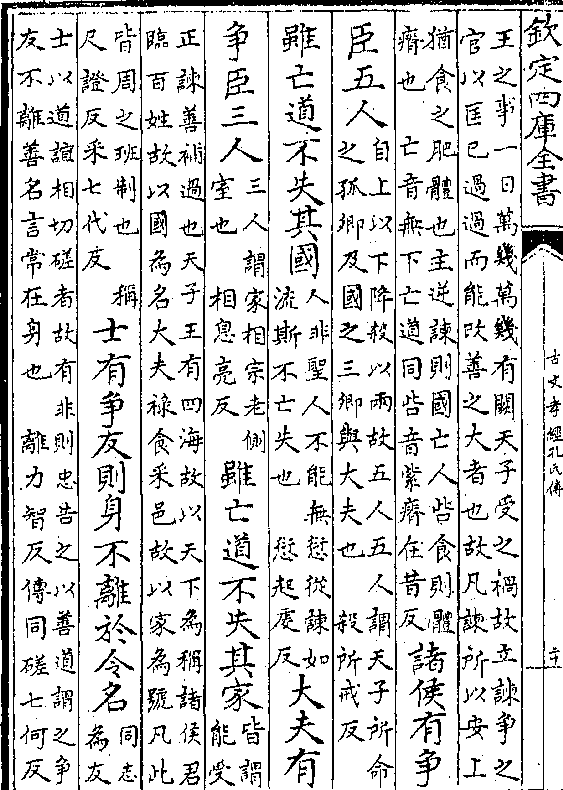 欽定四庫全書
古文孝經孔氏傳
二十
王之事一日萬幾萬幾有闕天子受之禍故立諫争之
官以匡已過過而能改善之大者也故凡諫所以安上
猶食之肥體也主逆諫則國亡人呰食則體
瘠也 亡音無下亡道同呰音紫瘠在昔反
諸侯有争
臣五人
自上以下降殺以兩故五人五人謂天子所命
之孤卿及國之三卿與大夫也 殺所戒反
雖亡道不失其國
人非聖人不能無愆從諫如
流斯不亡失也 愆起虔反
大夫有
争臣三人
三人謂家相宗老側
室也 相息亮反
雖亡道不失其家
皆謂
能受
正諫善補過也天子王有四海故以天下為稱諸侯君
臨百姓故以國為名大夫祿食采邑故以家為號凡此
皆周之班制也 稱
尺證反采七代反
士有争友則身不離於令名
同志
為友
士以道誼相切磋者故有非則忠告之以善道謂之争
友不離善名言常在身也 離力智反傳同磋七何反